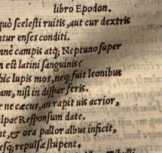 libro Epodon.
quò scelesti ruitis, aut cur dextris
ntur enses conditi.
mpis atq; Neptuno super
m est latini sanguinis
hic lupis mos, nec fuit leonibus
am, nisi in dispar feris.
r ne cæcus, an rapit uis acrior,
lpa? Responsum date.
nt, & ora pallor albus inficit,
esq; repulsæ stupent.